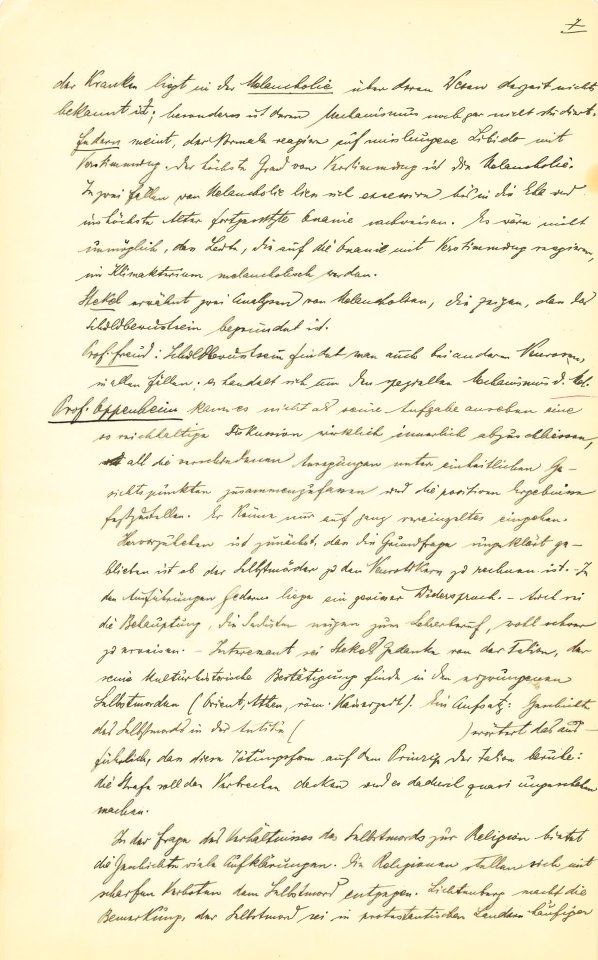 7
der Kranken liegt in der Melancholie über deren Wesen derzeit nichts
bekannt ist; besonders ist deren Mechanismus noch gar nicht studiert.
Federn meint, der Normale reagiere auf misslungene Libido mit
Verstimmung. Der höchste Grad von Verstimmung ist die Melancholie.
In zwei Fällen von Melancholie liess sich excessive bis in die Ehe und
ins höchste Alter fortgesetzte Onanie nachweisen. Es wäre nicht
unmöglich, dass Leute, die auf die Onanie mit Verstimmung reagieren,
im Klimakterium melancholisch werden.
Stekel erwähnt zwei Analysen von Melancholien, die zeigen, dass das
Schuldbewusstsein begründet ist.
Prof. Freud: Schuldbewusstsein findet man auch bei anderen Neurosen,
in allen Fällen; es handelt sich um den speziellen Mechanismus d. Mel.
Prof. Oppenheim kann es nicht als seine Aufgabe ansehen eine
so reichhaltige Diskussion wirklich innerlich abzuschliessen,
all die verschiedenen Anregungen unter einheitlichen Ge-
sichtspunkten zusammenzufassen und die positiven Ergebnisse
festzustellen. Er könne nur auf ganz vereinzeltes eingehen.
Hervorzuheben ist zunächst, dass die Grundfrage ungeklärt ge-
blieben ist ob der Selbstmörder zu den Neurotikern zu rechnen ist. - In
den Ausführungen Federns liege ein gewisser Widerspruch. - Auch sei
die Behauptung, die Sadisten neigen zum Lehrberuf, wohl schwer
zu erweisen. - Interessant sei Stekels Gedanke von der Talion, der
seine kulturhistorische Bestätigung finde in den erzwungenen
Selbstmorden (Orient, Athen, röm. Kaiserzeit). Ein Aufsatz: Geschichte
des Selbstmords in der Antike ( ) erörtert das aus-
führlich, dass diese Tötungsform auf dem Prinzip der Talion beruhe:
die Strafe soll das Verbrechen decken und es dadurch quasi ungeschehen
machen.
In der Frage des Verhältnisses des Selbstmords zur Religion bietet
die Geschichte viele Aufklärungen. Die Religionen stellen sich mit
scharfen Verboten dem Selbstmord entgegen. Lichtenberg macht die
Bemerkung, der Selbstmord sei in protestantischen Ländern häufiger